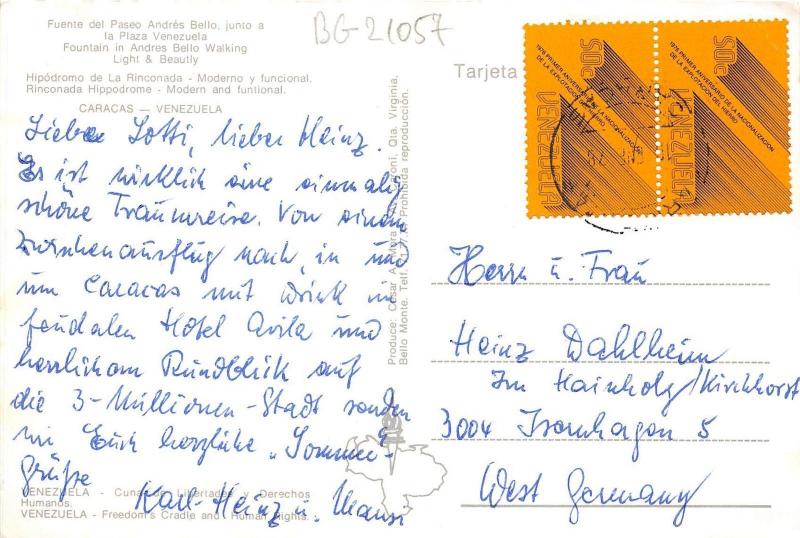 Fuente del Paseo Andrés Bello, junto a
la Plaza Venezuela
Fountain in Andres Bello Walking
Light & Beautly
Hipódromo de La Rinconada - Moderno y funcional.
Rinconada Hippodrome - Modern and funtional.
CARACAS — VENEZUELA
BG-21057
Liebe Lotti, lieber Heinz.
Es ist wirklich eine einmalig
schöne Traumreise. Von einem
Zwischenausflug nach, in und
um Caracas mit Drink im
feudalen Hotel Avila und
herrlichem Rundblick auf
die 3-Millionen-Stadt senden
wir Euch herzliche „Sommer-
grüße
Karl-Heinz u. Hansi
VENEZUELA - Cuna de Libertades y Derechos
Humanos.
VENEZUELA - Freedom's Cradle and Human Rights.
Produce: Cesar A.
Bello Monte. Telf. Prohibida reproducción.
Tarjeta
50c
1976 PRIMER ANIVERSARIO DE LA NACIONALIZACION
DE LA EXPLOTACION DEL HIERRO
VENEZUELA
50c
1976 PRIMER ANIVERSARIO DE LA NACIONALIZACION
DE LA EXPLOTACION DEL HIERRO
VENEZUELA
Herrn u. Frau
Heinz Dahlheim
Im Hainholz/Kirchhorst
3004 Isernhagen 5
West Germany